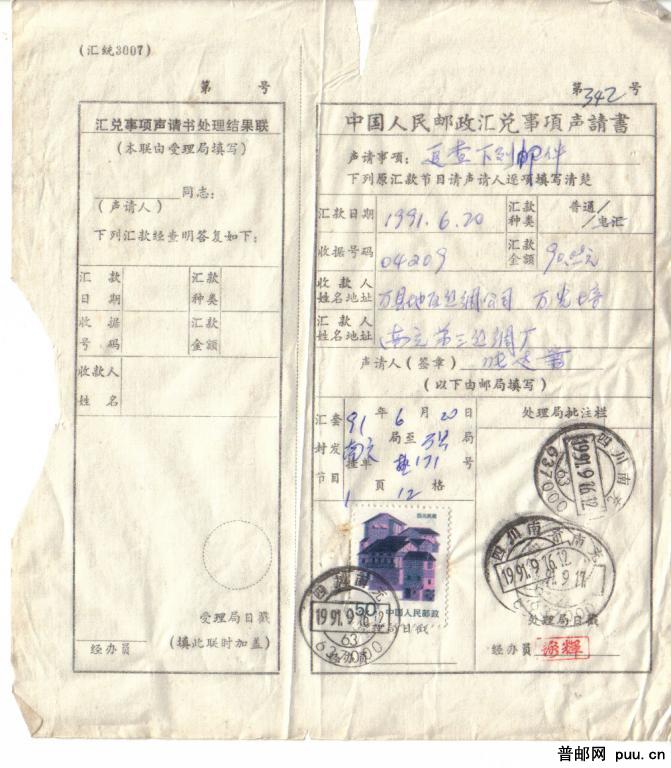 (汇统3007)
第 号
汇兑事项声请书处理结果联
(本联由受理局填写)
同志:
(声请人)
下列汇款经查明答复如下:
汇款日期 汇款种类
收据号码 汇款金额
收款人姓名
受理局日戳
经办员 (填此联时加盖)
第342号
中国人民邮政汇兑事項声請書
声请事项: 查下列邮件
下列原汇款节目请声请人逐项填写清楚
汇款日期 1991.6.20 汇款种类 普通/电汇
收据号码 04209 汇款金额 90.00元
收款人姓名地址 万县地区丝绸公司
汇款人姓名地址 南充第三丝绸厂
声请人(签章)
(以下由邮局填写)
汇套封发节目 91年6月20日
南充局至万县局
挂单 171号
1页12格
处理局批注栏
四川南充
1991.9.16.12
63
637000
四川民居
50 中国人民邮政
四川南充
1991.9.16.12
63
637000
受理局日戳
经办员
四川南充
1991.9.16.12
9.17
处理局日戳
经办员
普邮网 puu.cn